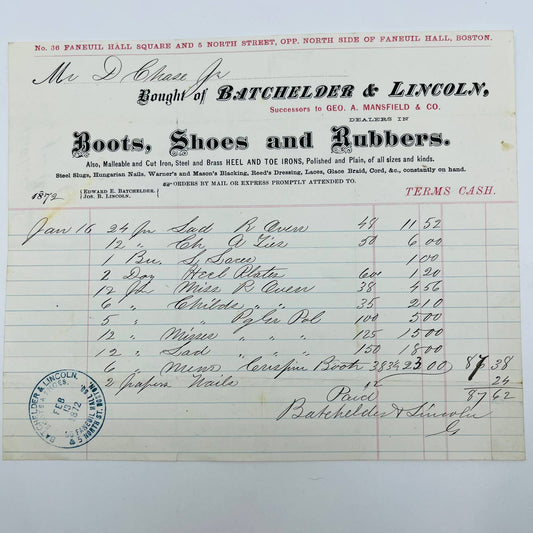 No. 36 FANEUIL HALL SQUARE AND 5 NORTH STREET, OPP. NORTH SIDE OF FANEUIL HALL, BOSTON.
Mr D Chase Jr
Bought of BATCHELDER & LINCOLN,
Successors to GEO. A. MANSFIELD & CO.
DEALERS IN
Boots, Shoes and Rubbers.
Also, Malleable and Cut Iron, Steel and Brass HEEL AND TOE IRONS, Polished and Plain, of all sizes and kinds.
Steel Slugs, Hungarian Nails, Warner's and Mason's Blacking, Reed's Dressing, Laces, Glace Braid, Cord, &c., constantly on hand.
ORDERS BY MAIL OR EXPRESS PROMPTLY ATTENDED TO.
1872 { EDWARD E. BATCHELDER. JOS. R. LINCOLN. } TERMS CASH.
Jan 16 24 Pr Lad R Oven 48 11 52
12 " Ch A Ties 50 6 00
1 Bu. S Laces 1 00
2 Doz Heel Plates 60c 1 20
12 Pr Miss R Oven 38 4 56
6 " Childs " " 35 2 10
5 " " Pg Gr Pol 100 5 00
12 " Misses " " 125 15 00
12 " Lad " " 150 18 00
6 " Mens Crispin Boots 23 00 87 38
2 papers Nails 12 24
Paid 87 62
Batchelder & Lincoln
G
BATCHELDER & LINCOLN,
FEB
13
1872
36 FANEUIL HALL SQ.
& 5 NORTH ST. BOSTON.